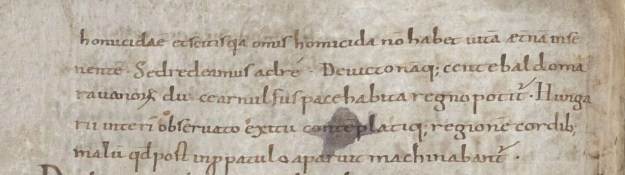 homicidae et scitis qa omis homicida nō habet vitā aetnā in se
nente · Sed redeamus ad rē · Deuicto naq; centebaldo mā
rauanorū du · cearnulfus pace habita regno potit̄ · Hunga
rii interī observato exitu contēplatiq; regionē cordib;
malū qd post in ppatulo aparuit machinabant̄ ·